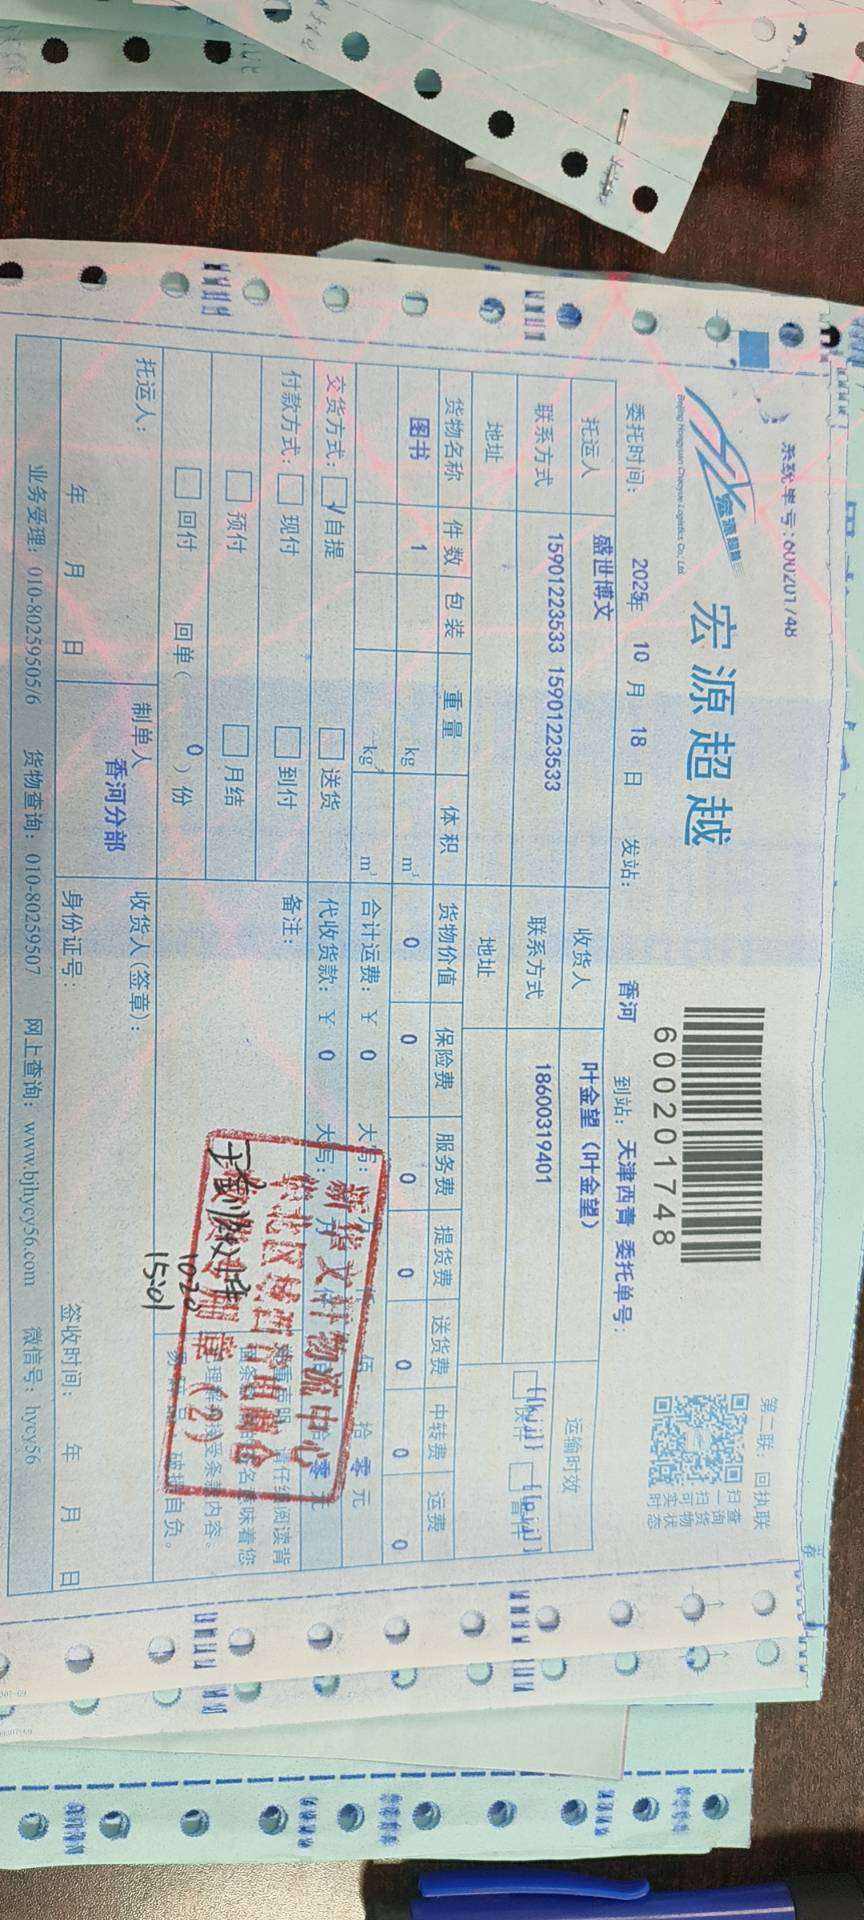 系统单号:600201748
宏源超越
Beijing Hongyuan Chaoyue Logistics Co., Ltd.
宏源超越
600201748
第二联：回执联
扫一扫可实时
查询货物状态
委托时间： 2025年 10 月 18 日 发站： 香河 到站： 天津西青 委托单号：
托运人 盛世博文 收货人 叶金望（叶金望） 运输时效
联系方式 15901223533 15901223533 联系方式 18600319401
地址 地址
货物名称 件数 包装 重量 体积 货物价值 保险费 服务费 提货费 送货费 中转费 运费
图书 1 kg m³ 0 0 0 0 0 0 0
kg m³ 合计运费：￥ 0 大写： 佰 拾 零 元
交货方式： √自提 送货 代收货款：￥ 0 大写： 零 元
付款方式： 现付 到付 备注：
预付 月结
回付 回单（ 0 ）份
托运人： 制单人 收货人（签章）：
香河分部
年 月 日 身份证号： 签收时间： 年 月 日
新华文轩物流中心
（2）
10.20
15:01
业务受理：010-80259505/6 货物查询：010-80259507 网上查询：www.bjhycy56.com 微信号：hycy56